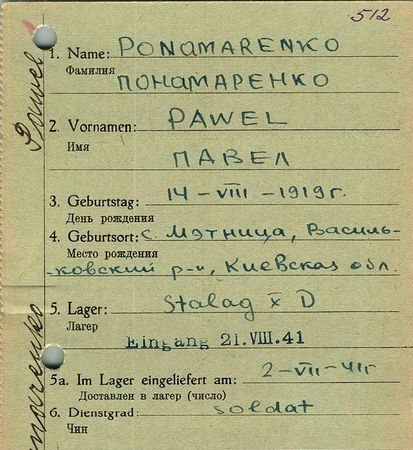 512
1. Name: PONAMARENKO
Фамилия ПОНАМАРЕНКО
2. Vornamen: PAWEL
Имя ПАВЕЛ
3. Geburtstag: 14-VIII-1919г.
День рождения
4. Geburtsort: с. Мэтница, Василь-
Место рождения
-ковский р-н, Киевская обл.
5. Lager: Stalag X D
Лагер
Eingang 21.VIII.41
5a. Im Lager eingeliefert am: 2-VII-41г
Доставлен в лагер (число)
6. Dienstgrad: soldat
Чин
Pawel